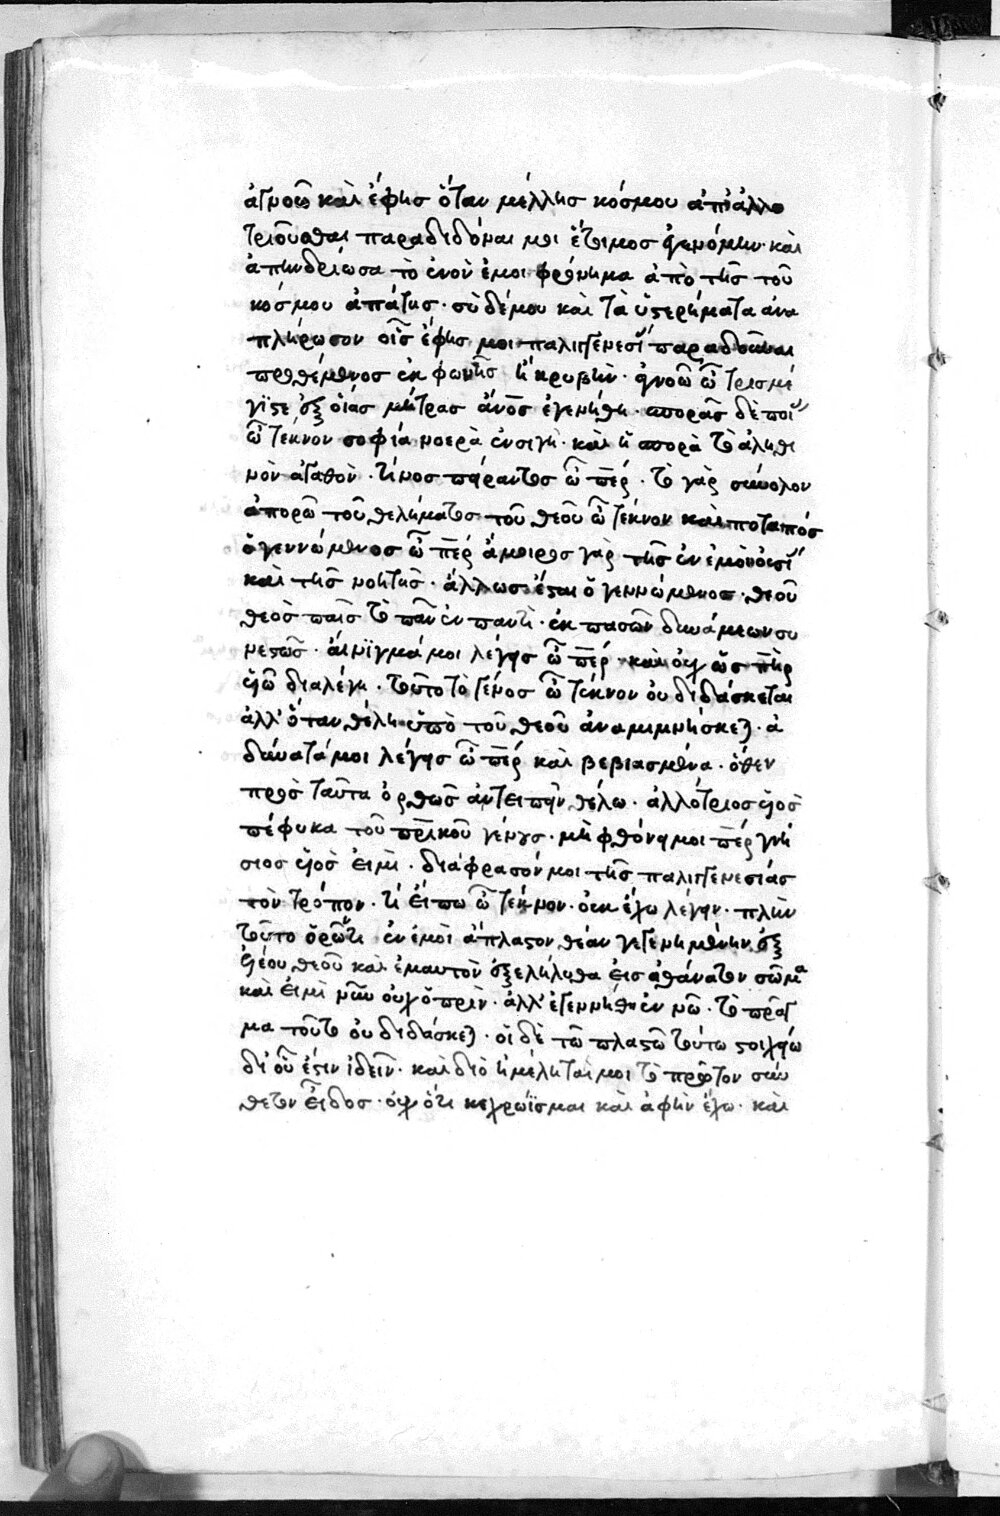 ἀγνοῶ καὶ ἔφησ ὅταν μέλλησ κόσμου ἀπαλλο
τριοῦσθαι παραδιδόναι μοι ἕτοιμοσ ἐγενόμην· καὶ
ἀπηνδρείωσα τὸ ἐν ἐμοὶ φρόνημα ἀπὸ τῆσ τοῦ
κόσμου ἀπάτησ· σὺ δέ μου καὶ τὰ ὑστερήματα ἀνα
πλήρωσον οἷσ ἔφησ μοι παλιγγενεσίαν παραδοῦναι
προθέμενοσ ἐκ φωνῆσ ἢ κρυβήν· ἀγνοῶ ὦ τρισμέ
γιστε ἐξ οἵασ μήτρασ ἄνοσ ἐγεννήθη· σπορᾶσ δὲ ποίασ
ὦ τέκνον σοφία νοερὰ ἐν σιγῆ· καὶ ἡ σπορὰ τὸ ἀληθι
νὸν ἀγαθόν· τίνοσ σπείραντοσ ὦ περ· τὸ γὰρ σύνολον
ἀπορῶ τοῦ θελήματοσ τοῦ θεοῦ ὦ τέκνον καὶ ποταπόσ
ὁ γεννώμενοσ ὦ περ ἄμοιροσ γὰρ τῆσ ἐν ἐμοὶ οὐσίασ
καὶ τῆσ νοητῆσ· ἄλλωσ ἔσται ὁ γεννώμενοσ· θεοῦ
θεὸσ παῖσ τὸ πᾶν ἐν παντὶ· ἐκ πασῶν δυνάμεων συ
νεστώσ· αἴνιγμά μοι λέγεισ ὦ περ· καὶ οὐχ ὡσ πηρ
υἱῶ διαλέγη· τοῦτο τὸ γένοσ ὦ τέκνον οὐ διδάσκεται
ἀλλ' ὅταν θέλη ὑπὸ τοῦ θεοῦ ἀναμιμνήσκεται· ἀ
δύνατά μοι λέγεισ ὦ περ καὶ βεβιασμένα· ὅθεν
πρὸσ ταῦτα ὀρθῶσ ἀντειπεῖν θέλω· ἀλλότριοσ υἱὸσ
πέφυκα τοῦ πρικοῦ γένουσ· μὴ φθόνει μοι περ γνή
σιοσ υἱὸσ εἰμὶ· διάφρασόν μοι τῆσ παλιγγενεσίασ
τὸν τρόπον· τί εἴπω ὦ τέκνον· οὐκ ἔχω λέγειν· πλὴν
τοῦτο ὁρῶν τι ἐν ἐμοὶ ἄπλαστον θέαν γεγενημένην ἐξ
ἐλέου θεοῦ καὶ ἐμαυτὸν ἐξελήλυθα εἰσ ἀθάνατον σῶμα
καὶ εἰμὶ νῦν οὐχ ὁ πρὶν· ἀλλ' ἐγεννήθην ἐν νῶ· τὸ πρᾶγ
μα τοῦτο οὐ διδάσκεται· οἱ δὲ τῶ πλαστῶ τούτω στοιχείω
δι' οὗ ἔστιν ἰδεῖν· καὶ διὸ ἠμέληταί μοι τὸ πρῶτον σύν
θετον εἶδοσ· οὐχ ὅτι κεχρώϊσμαι καὶ ἀφὴν ἔχω· καὶ